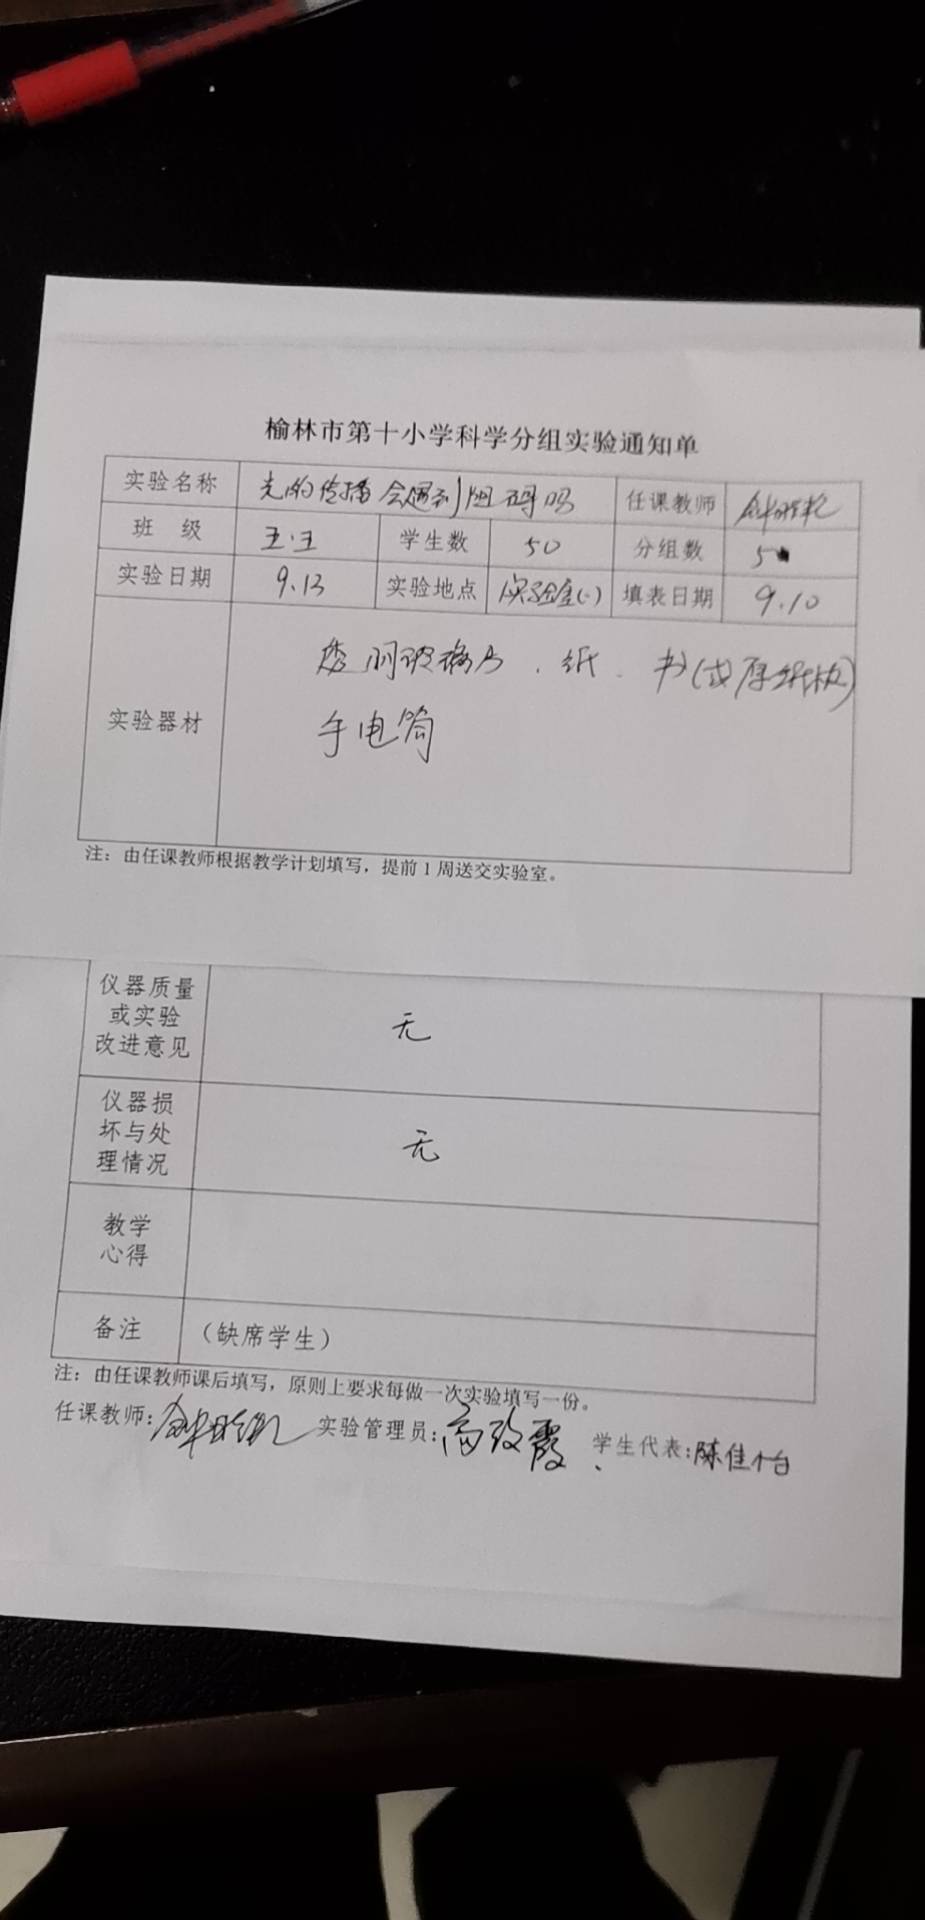 榆林市第十小学科学分组实验通知单
实验名称 光的传播会遇到阻碍吗 任课教师
班 级 五.五 学生数 50 分组数 5
实验日期 9.13 实验地点 实验室(一) 填表日期 9.10
实验器材 透明玻璃片、纸、书(或厚纸板)
手电筒
注：由任课教师根据教学计划填写，提前1周送交实验室。
仪器质量
或实验
改进意见 无
仪器损
坏与处
理情况 无
教学
心得
备注 （缺席学生）
注：由任课教师课后填写，原则上要求每做一次实验填写一份。
任课教师： 实验管理员：高改霞 学生代表：陈佳怡